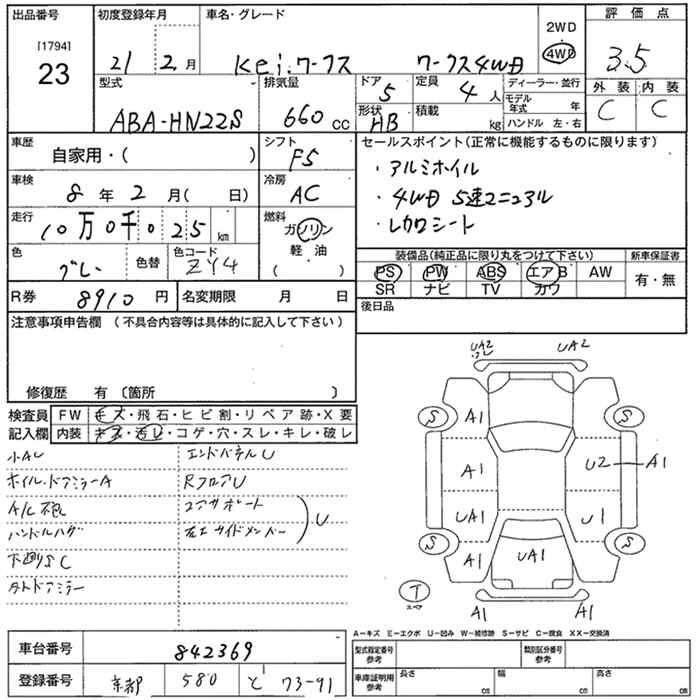 出品番号
[1794]
23
初度登録年月
21 2 月
車名・グレード
Kei.ワークス ワークス4WD
2WD
4WD
評価点
3.5
外装 内装
C C
型式
ABA-HN22S
排気量
660 CC
ドア 5
形状 HB
定員 4 人
積載 kg
ディーラー・並行
モデル年式 年
ハンドル 左・右
車歴
自家用・( )
シフト
F5
車検
8 年 2 月( 日)
冷房
AC
走行
10万0千025 km
燃料
ガソリン
軽油
( )
色
グレー
色替
色コード
ZY4
R券 8910 円
名変期限 月 日
セールスポイント(正常に機能するものに限ります)
・アルミホイル
・4WD 5速マニュアル
・レカロシート
装備品(純正品に限り丸をつけて下さい)
PS PW ABS エアB AW
SR ナビ TV カワ
新車保証書
有・無
後日品
注意事項申告欄 (不具合内容等は具体的に記入して下さい)
修復歴 有 〔箇所 〕
検査員
記入欄
FW キズ・飛石・ヒビ割・リペア跡・X要
内装 キズ・汚レ・コゲ・穴・スレ・キレ・破レ
小AU
ホイル.ドアミラーA
ハンドルハゲ
エンドパネルU
RフロアU
コアサポート
左右サイドメンバー
U
UA2
UA2
S
S
A1
A1
U2
A1
UA1
U1
S
S
A1
UA1
T
スペア
A1
A1
A−キズ E−エクボ U−凹み W−補修跡 S−サビ C−腐食 XX−交換済
車台番号 842369
登録番号 京都 580 と 73-91
型式指定番号
参考
類別区分番号
参考
車庫証明用
参考
長さ cm
幅 cm
高さ cm